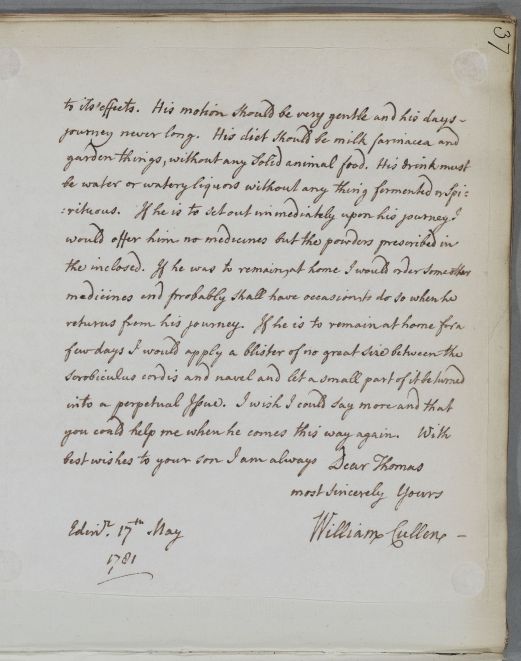 37
to its effects. His motion should be very gentle and his days-
journey never long. His diet should be milk farinacea and
garden things, without any solid animal food. His drink must
be water or watery liquors without any thing fermented or spi=
=rituous. If he is to set out immediately upon his journey I
would offer him no medicines but the powders prescribed in
the inclosed. If he was to remain at home I would order some other
medicines and probably shall have occasion to do so when he
returns from his journey. If he is to remain at home for a
few days I would apply a blister of no great size between the
scrobiculus cordis and navel and let a small part of it be turned
into a perpetual Issue. I wish I could say more and that
you could help me when he comes this way again. With
best wishes to your son I am always Dear Thomas
most sincerely Yours
William Cullen -
Edinr. 17th May
1781